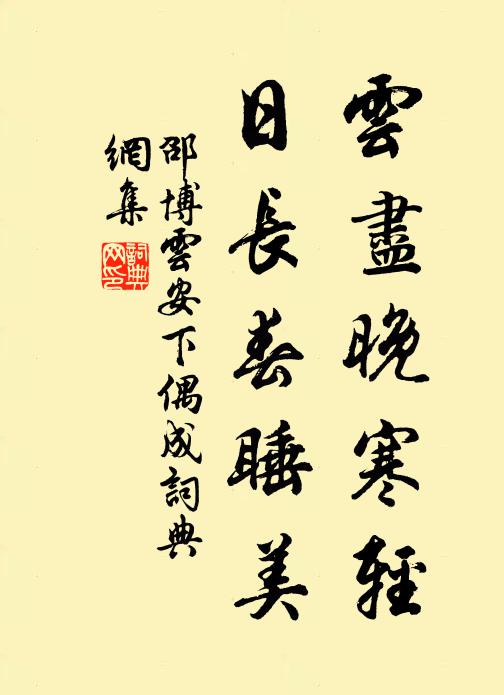 雲盡晚寒輕
日長春睡美
邵博雲安下偶成詞典
網集
詞典
网印